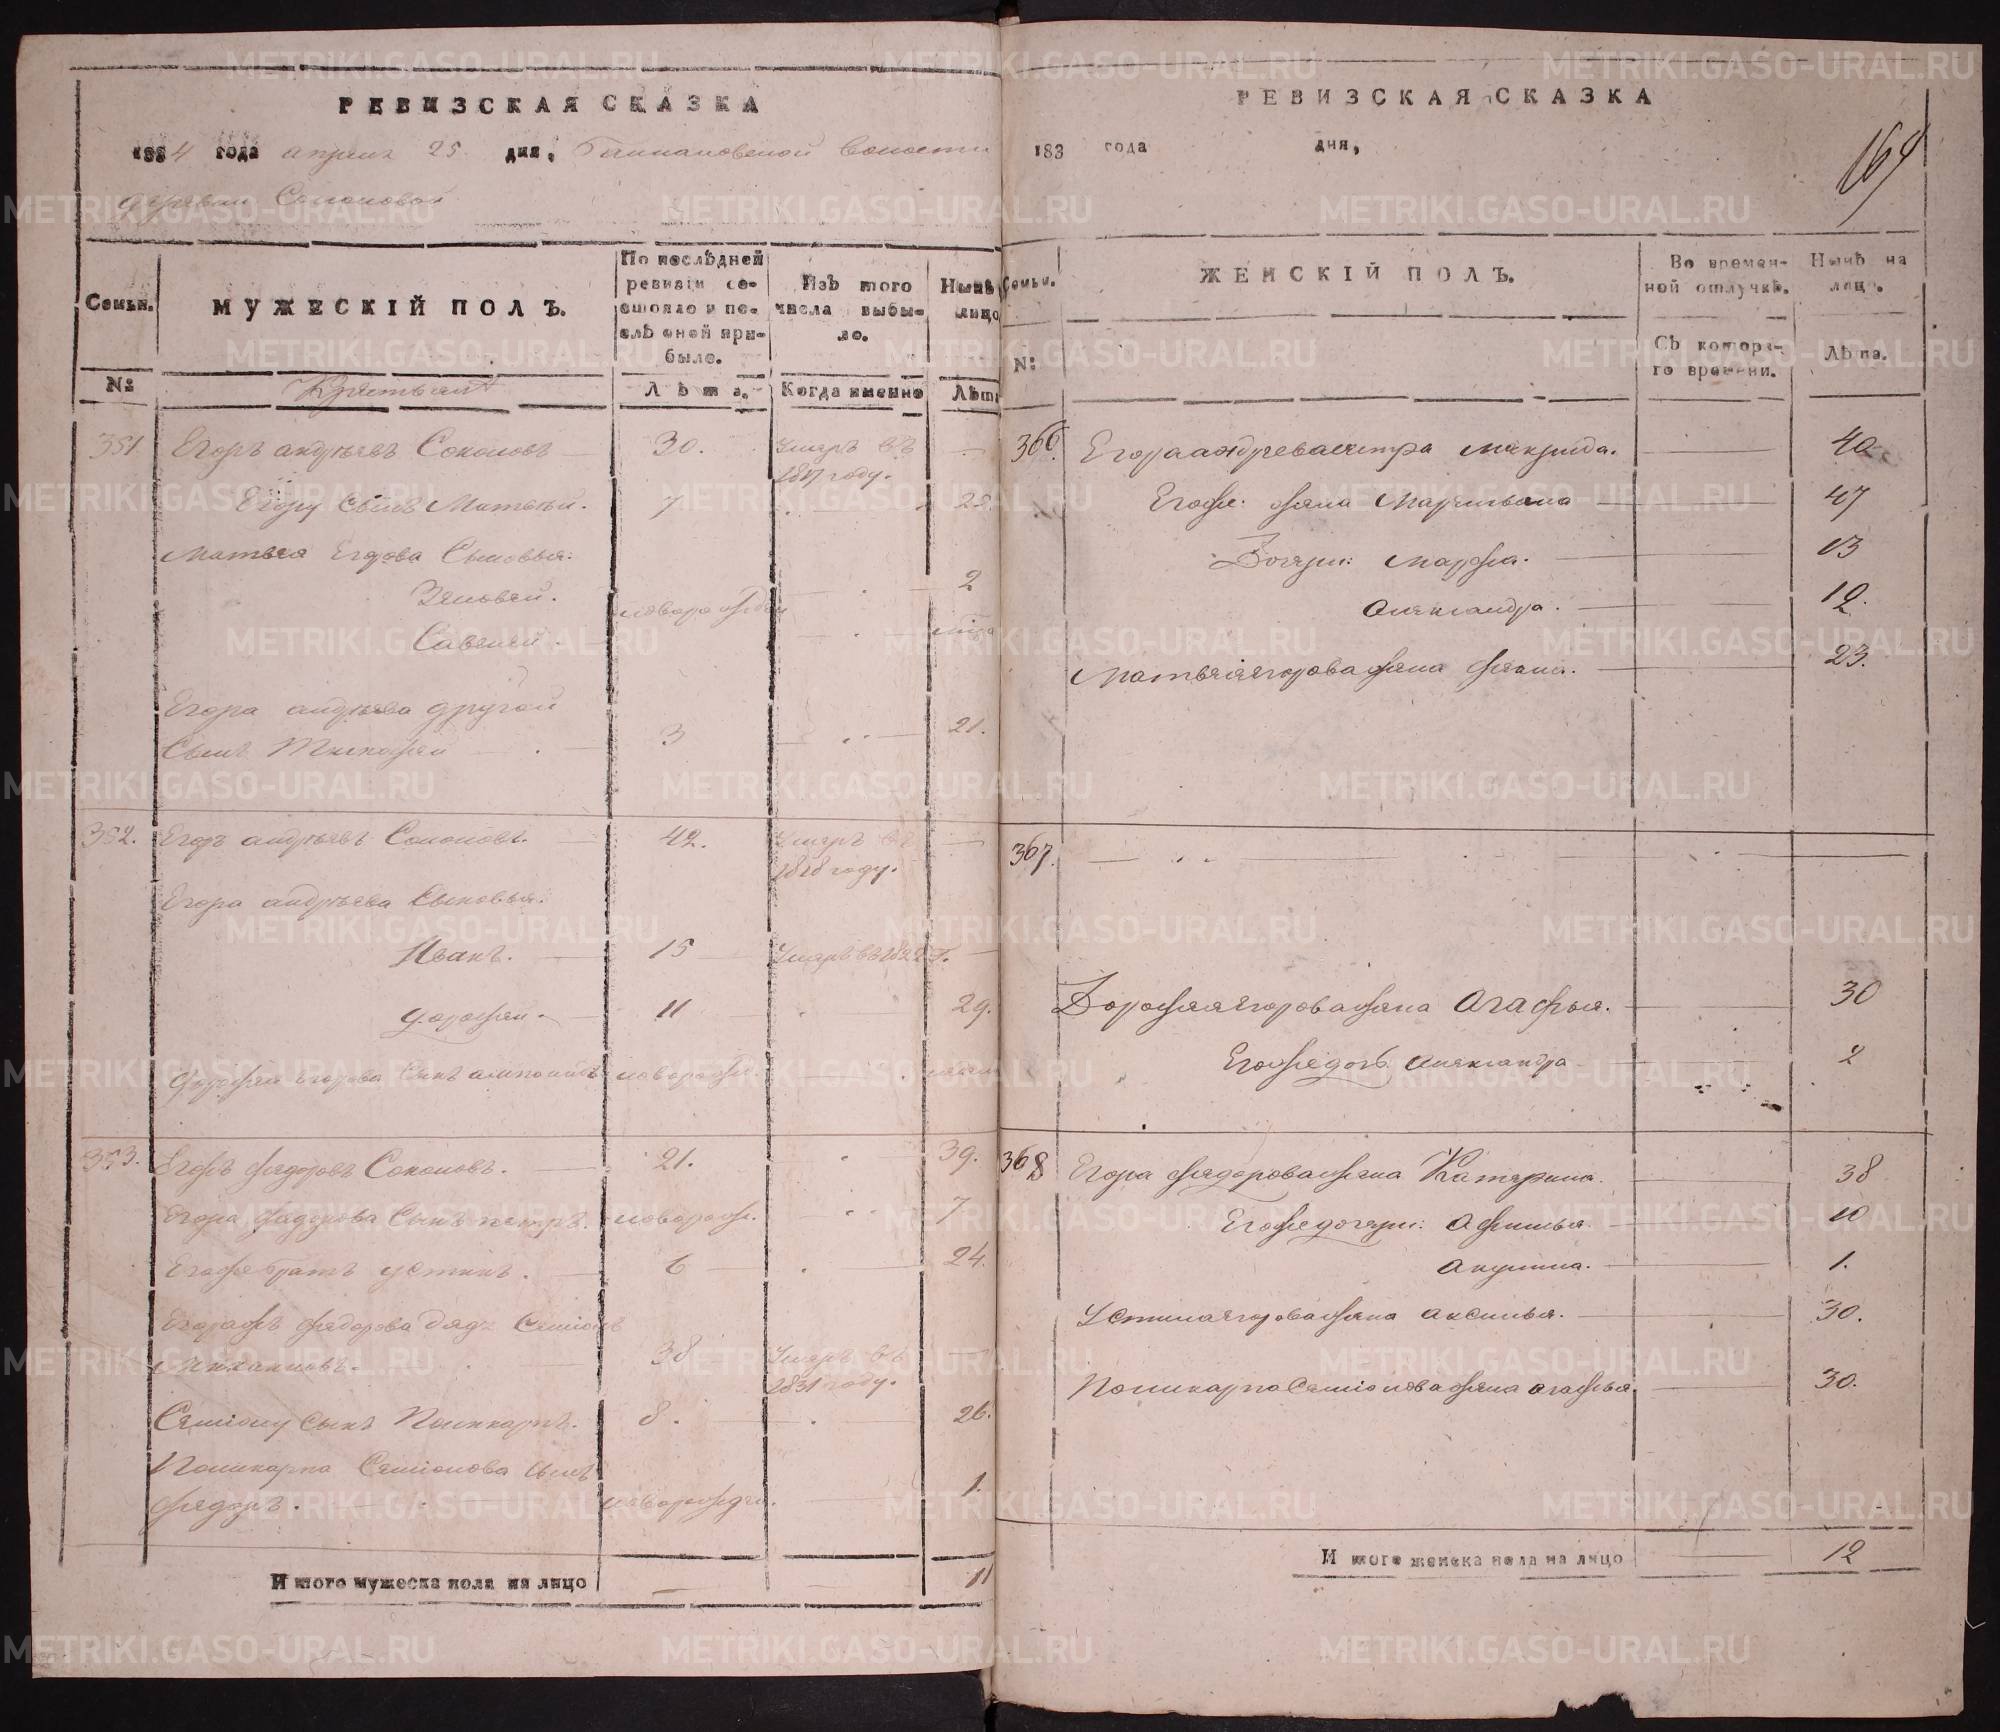 РЕВИЗСКАЯ СКАЗКА
1834 года апреля 25 дня, волости
деревни Соколовой
Семьи.
МУЖЕСКІЙ ПОЛЪ.
По послѣдней ревизіи состояло и послѣ оной прибыло.
Изъ того числа выбыло.
Нынѣ лицо
№
Лѣта.
Когда именно
Лѣт
Крестьяне
351 Егоръ андреевъ Соколовъ 30. Умеръ въ 1817 году.
Егору сынъ Матвѣй. 7 25.
Матвея Егорова Сыновья:
Зиновей. новорожден 2
Савелей
Егора андреева другой
Сынъ Тимофей 3 21.
352. Егоръ андреевъ Соколовъ. 42. Умеръ въ 1818 году.
Егора андреева Сыновья:
Иванъ. 15 Умеръ въ 1822 г.
дорофей. 11 29.
дорофея Егорова Сынъ новорожд.
353. Егоръ федоровъ Соколовъ. 21. 39.
Егора федорова Сынъ петръ. новорож. 7
Егоже братъ устинъ. 6 24.
федорова дядя Семіонъ
38 Умеръ въ 1831 году.
Семіону сынъ Поликарпъ. 8. 26.
Поликарпа Семіонова сынъ
федоръ. новорожден. 1.
И того мужеска пола на лицо 11
РЕВИЗСКАЯ СКАЗКА
183 года дня,
164
Семьи.
№:
ЖЕНСКІЙ ПОЛЪ.
Во временной отлучкѣ.
Съ котораго времени.
Нынѣ на лицо.
Лѣта.
366. Егора андрева сестра макрида. 40
Егоже: жена Маремьяна 47
Дочери: марфа. 13
александра. 12.
Матвея егорова жена 23.
367.
Дорофея егорова жена Агафья. 30
Егоже дочь александра 2
368 Егора федорова жена Катерина. 38
Егоже дочери: Афимья. 10
Акулина. 1.
Устина егорова жена аксинья. 30.
Поликарпа Семіонова жена агафья. 30.
И того женска пола на лицо 12
METRIKI.GASO-URAL.RU